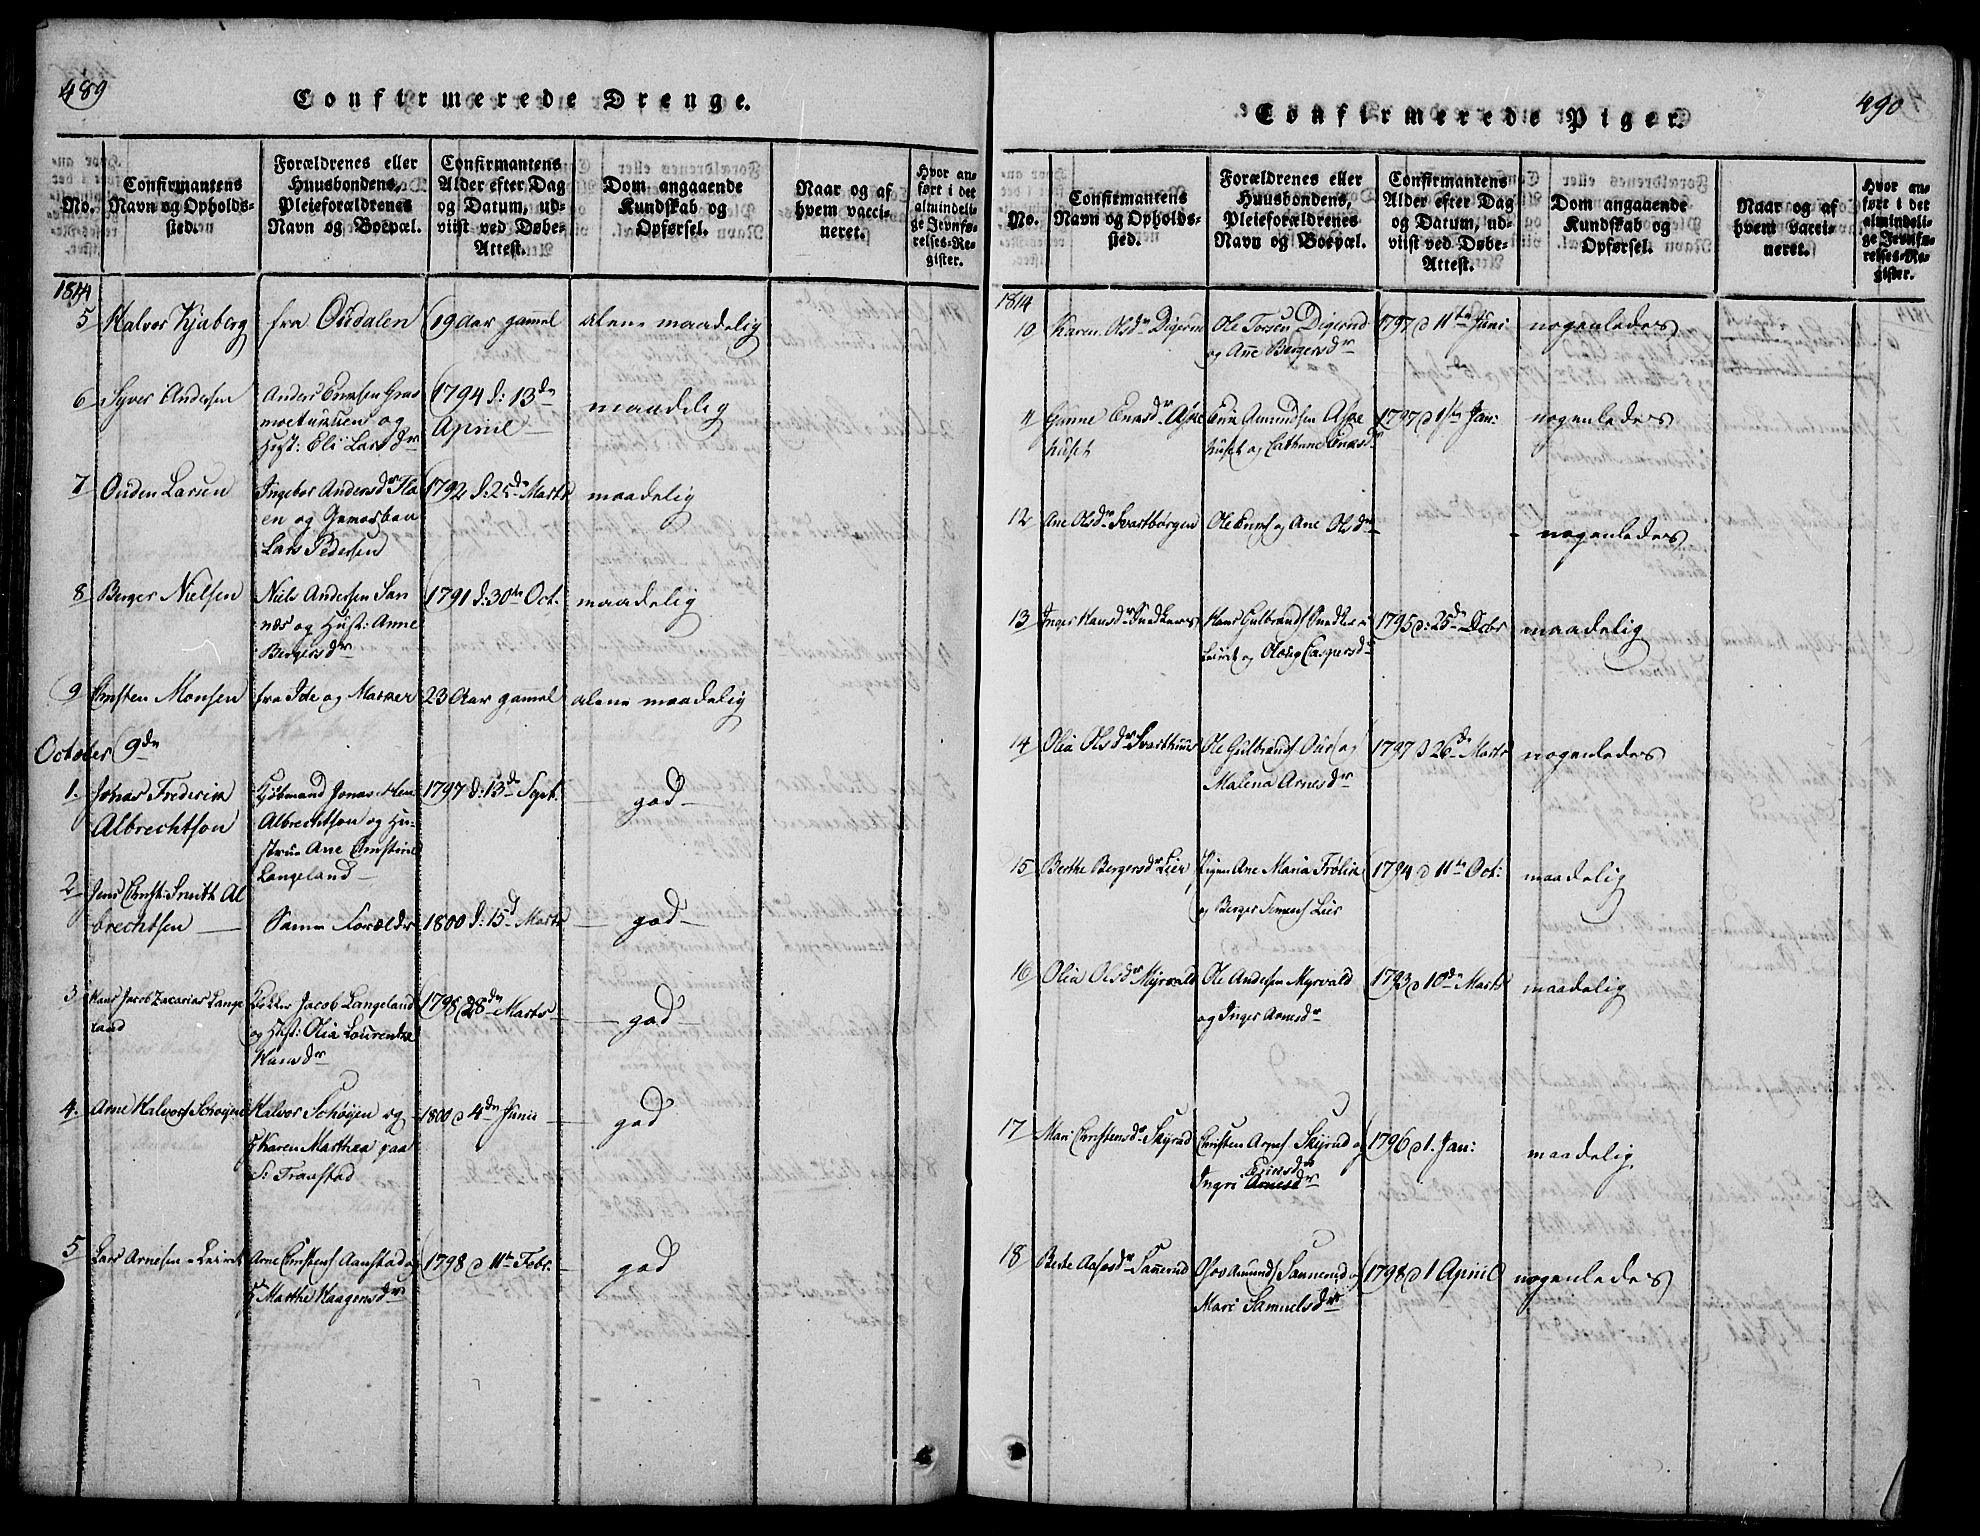 489
Confirmerede Drenge.
No.
Confirmantens
Navn og Opholds-
sted.
Forældrenes eller
Huusbondens,
Pleieforældrenes
Navn og Boepæl.
Confirmantens
Alder efter Dag
og Datum, ud-
viist ved Døbe-
Attest.
Dom angaaende
Kundskab og
Opførsel.
Naar og af
hvem vacci-
neret.
Hvor an-
ført i det
almindeli-
ge Jevnfø-
relses-Re-
gister.
1814
5 Halvor Kjøberg fra Oudalen 19 Aar gammel alene maadelig
6 Syver Andersen Anders
og
Hust: Eli Larsdr 1794 d: 13de
April maadelig
7 Ouden Larsen Ingebor Andersdr
en og
Lars Pedersen 1792 d: 25de Marts maadelig
8 Berger Nielsen Niels Andersen San
næs og Hust: Anne
Bergersdr 1791 d: 30te Oct. maadelig
9 Christen Monsen fra Ide og Marker 23 Aar gamel alene maadelig
October 9de
1. Johas Frederik
Albrechtson Kjøbmand Jonas
Albrechtson og Hu-
strue Ane Christine
Langeland 1797 d: 13de Sept. god
2 Jens Christ: Smith Al
brechtsen Samme Forældre 1800 d: 15d Marts god
3 Hans Jacob Zacarias Lange
land Klokker Jacob Langeland
og Hust: Olia Lourentze
Hansdr 1798 28de Marts god
4. Arne Halvors Schøyen Halvor Schøyen og
Karen Marthea paa
Transtad 1800 d 4de Junii god
5 Lars Arnesen Leiret Arne Christens Aanstad og
Marthe Haagensdr 1798 d 11te Febr. god
490
Confirmerede Piger.
No.
Confirmantens
Navn og Opholds-
sted.
Forældrenes eller
Huusbondens,
Pleieforældrenes
Navn og Boepæl.
Confirmantens
Alder efter Dag
og Datum, ud-
viist ved Døbe-
Attest.
Dom angaaende
Kundskab og
Opførsel.
Naar og af
hvem vacci-
neret.
Hvor an-
ført i det
almindeli-
ge Jevnfø-
relses-Re-
gister.
1814
10 Karen Olsdr Digerud Ole Torsen Digerud
og Ane Bergersdr 1797 d 11te Juni nogenledes
11 Gunne Ericsdr Aspe
huset Eric Amundsen Aspe
huset og Cathrine Ericsdr 1797 d 1ste Jan: nogenledes
12 Ane Olsdr Svartbørgen Ole og Ane Olsdr nogenledes
13 Inger Hansdr Snedkers Hans Gulbrands Snedker i
Leiret og Oloug Caspersdr 1795 d: 25de Decbr maadelig
14 Olia Olsdr Svarthuus Ole Gulbrands og
Malena Arnesdr 1797 d 26de Marts nogenledes
15 Berthe Bergersdr Lier Pigen Ane Maria Frølik
og Berger Lier 1794 d 11te Oct: maadelig
16 Olia Olsdr Myrvold Ole Andersen Myrvald
og Inger Arnesdr 1793 d 10de Marts maadelig
17 Mari Christensdr Skyrud Christen Arnes Skyrud og
Ericsdr
Ingri Arnesdr 1796 d 1. Jan: maadelig
18 Berte Sannerud Amunds Sannerud og
Mari Samuelsdr 1798 d 1 April nogenledes